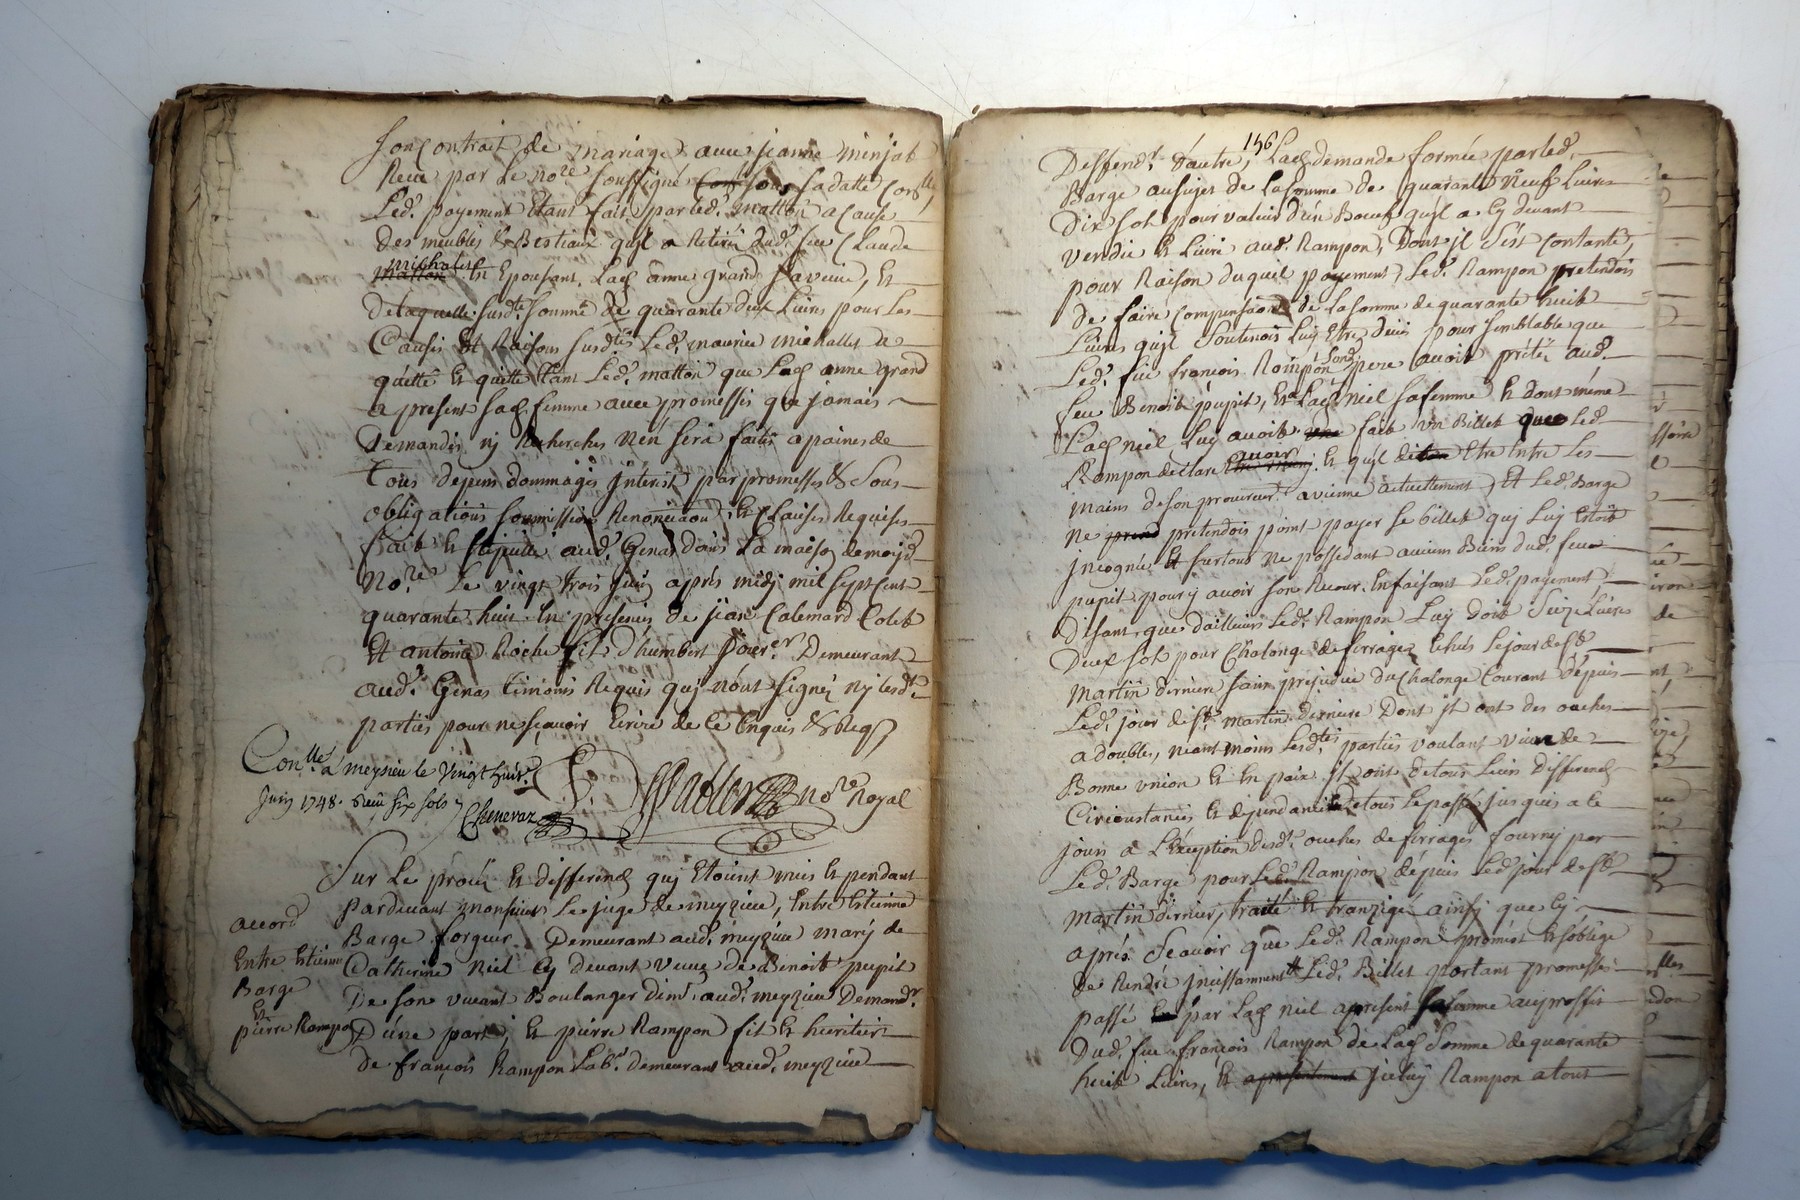 son Contrait de mariage avec jeanne minjat
Receu par le no.re soussigné sous sa datte Con.llé,
Led.t payement étant fait par led.t matton a cause
des meubles & Bestiaux quil a Retiré dud.t feu Claude
michallet En Epousant Lad. anne grand sa veuve, Et
de laquelle susd.te somme de quarante deux Livres pour Les
Causes Et Raisons susd.tes Led.t maurice michallet a
quitté et quitte tant Led.t matton que Lad. anne grand
a present sad. femme avec promesses que jamais
Demandes nj Recherches nen sera faite a paines de
Tous depens dommages interest par promesses & sous
obligations soumissions Renonciaõn, Et Clauses Requises
fait et stipullé aud.t Genas dans La maison de moyd.
No.re Le vingt trois juin après midj mil sept cent
quarante huit En presence de jean Calemard Colet
Et antoine Roche fils d'humbert Demeurant
aud.t Genas timoins Requis quj nont signés nj lesd.
parties pour ne sçavoir Ecrire de ce Enquis & Req
Con.llé a meysieu le Vingt huit
Juin 1748. Receu six sols
Chenevaz
no.re Royal
Sur Le procès et differend quj Etoient meus et pendant
pardevant monsieur Le juge de meyzieu, Entre Estienne
Barge forgeur Demeurant aud.t meyzieu mary de
Catherine niel Cy devant veuve de Benoit pupit
De son vivant Boulanger dem.t aud.t meyzieu Demand.r
D'une part, Et pierre Rampon fils et heritier
de françois Rampon Lab.r demeurant aud.t meyzieu
accord
Entre Estienne
Barge
Et
pierre Rampon
156
Deffend.r d'autre, Lad. demande formée par led.
Barge au sujet de La somme de quarante neuf Livres
Dix sols pour valeur d'un Boeuf quil a Cy devant
vendu et Livré aud.t Rampon, Dont il s'est contanté,
pour Raison duquel payement, Led.t Rampon pretendois
de faire compensaõn de La somme de quarante huit
Livres quil soutenois Luy Etre düe pour semblable que
Led.t feu françois Rampon sond. pere avoit prété aud.
feu Benoit pupit, Et a Lad. niel sa femme Et dont méme
Lad. niel Luy avoit fait un Billet que led.
Rampon declare avoir Et quil dit Etre Entre Les
mains de son procureur a vienne actuellement, Et Led.t Barge
ne pretendois point payer le billet quj Luy Etoit
incognu Et surtout ne possedant aucuns Biens dud.t feu
pupit pour y avoir son Recour. En faisant Led.t payement
disant que dailleurs Led.t Rampon Luy doit seize Livres
Deux sols pour Chalonge de ferrages Echus le jour de s.t
martin derniere sans prejudice du Chalonge Courant depuis
Led.t jour de s.t martin derniere Dont jl ont des ouches
a doubles, néant moins Lesd.tes parties voulant vivre de
Bonne union et En paix jl ont de tous Leurs differend
Circonstances et dependances de tous Le passé jusques a ce
jour a L'Exception desd.t ouches de ferrages fournj par
Led.t Barge pour Led.t Rampon depuis Led. jour de s.t
martin dernier, traité Et tranzigé ainsj que Cy
après. Scavoir que Led.t Rampon promest Et s'oblige
de Rendre incessamment Led.t Billet portant promesse
passé par Lad. niel apresent sa femme au proffit
Dud.t feu françois Rampon de Lad. somme de quarante
huit Livres, Et jceluy Rampon a tout